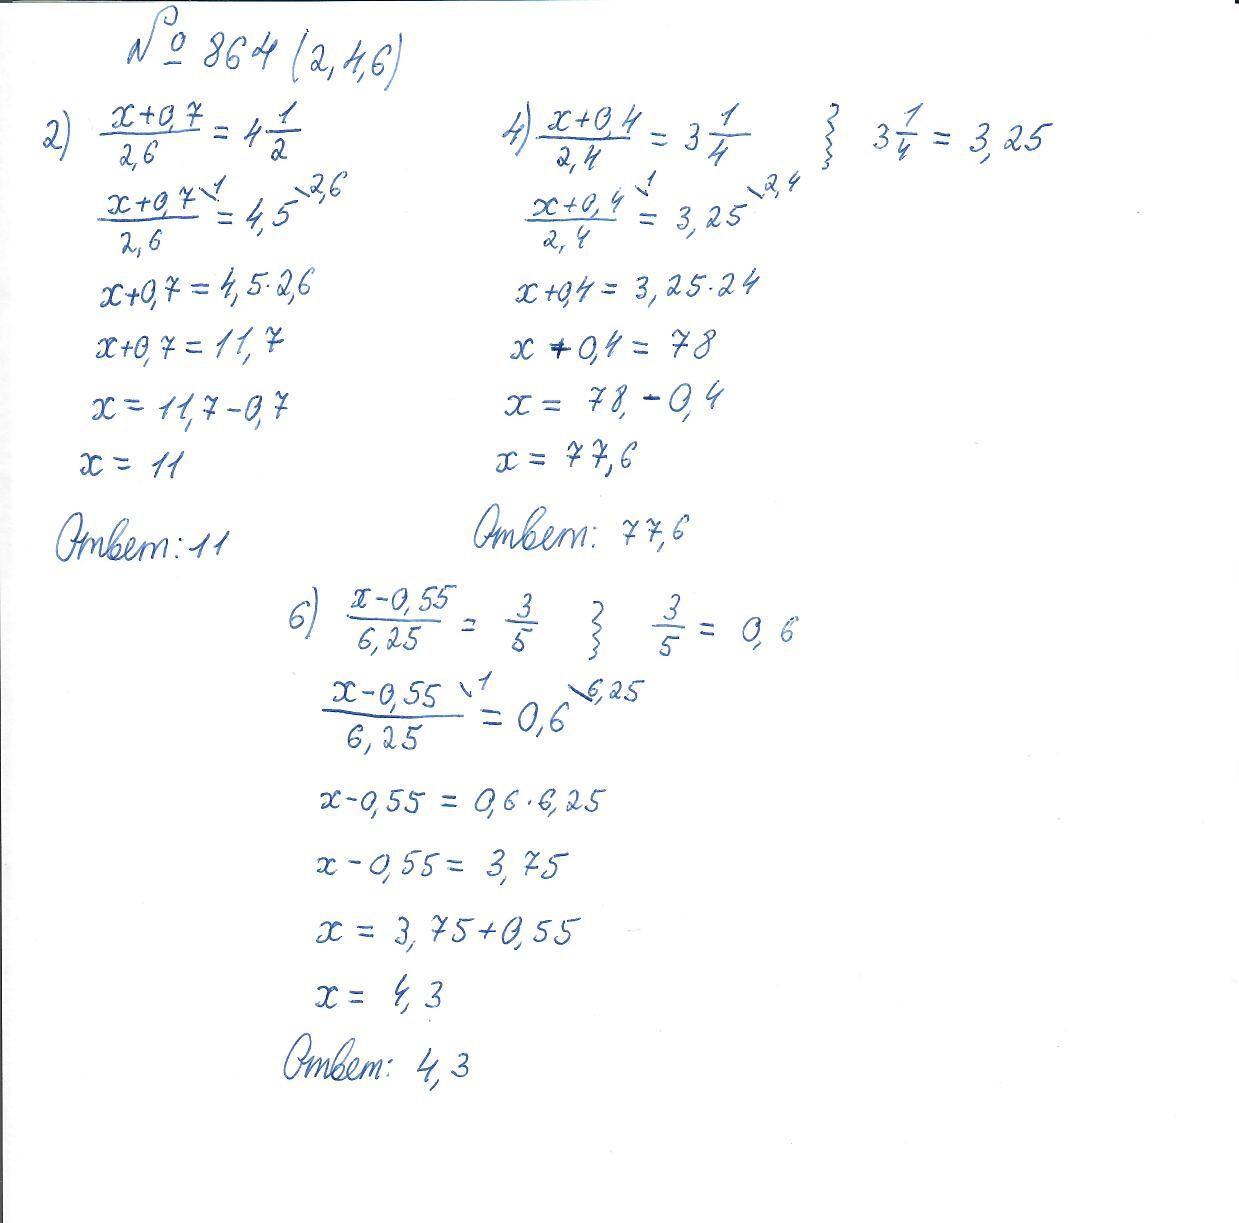 № 864 (2,4,6)
2) (x+0,7)/2,6 = 4 1/2
(x+0,7)/2,6 \1 = 4,5 \2,6
x+0,7 = 4,5·2,6
x+0,7 = 11,7
x = 11,7-0,7
x = 11
Ответ: 11
4) (x+0,4)/2,4 = 3 1/4 } 3 1/4 = 3,25
(x+0,4)/2,4 \1 = 3,25 \2,4
x+0,4 = 3,25·24
x + 0,4 = 78
x = 78, - 0,4
x = 77,6
Ответ: 77,6
6) (x-0,55)/6,25 = 3/5 } 3/5 = 0,6
(x-0,55)/6,25 \1 = 0,6 \6,25
x-0,55 = 0,6·6,25
x-0,55 = 3,75
x = 3,75+0,55
x = 4,3
Ответ: 4,3